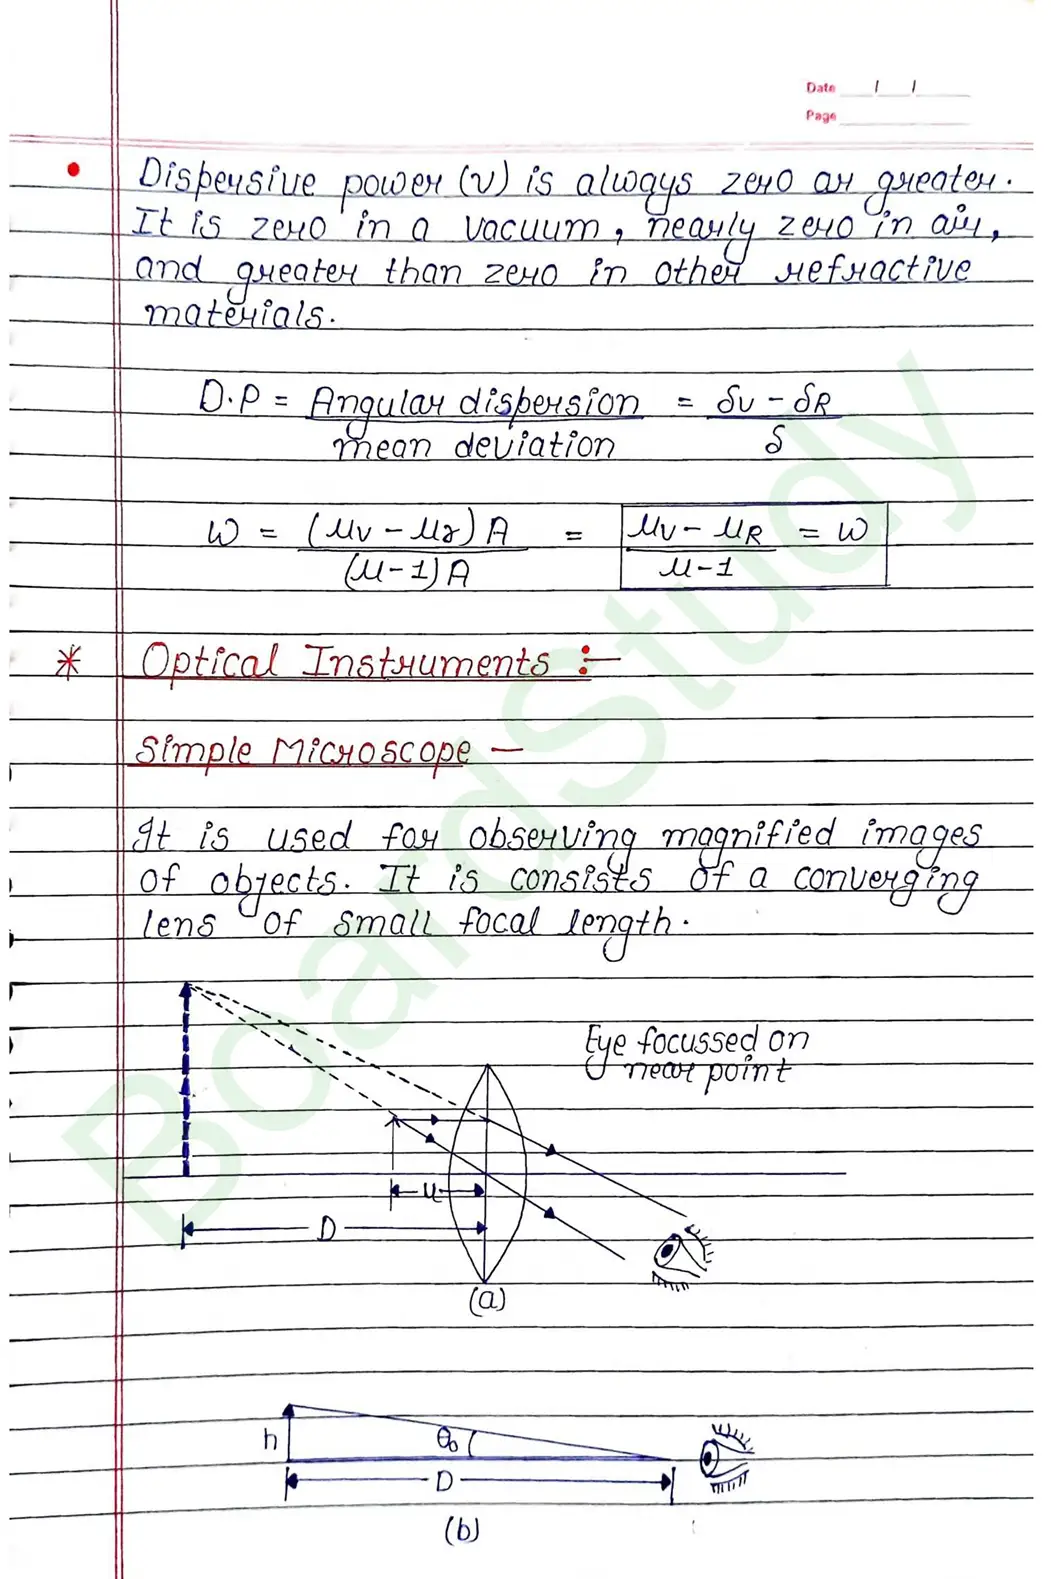 Date / /
Page
Dispersive power (v) is always zero or greater.
It is zero in a vacuum, nearly zero in air,
and greater than zero in other refractive
materials.
D.P = Angular dispersion / mean deviation = δv - δR / δ
ω = (μv - μr) A / (μ-1) A = μv - μR / μ-1 = ω
* Optical Instruments :-
Simple Microscope -
It is used for observing magnified images
of objects. It is consists of a converging
lens of small focal length.
Eye focussed on
near point
u
D
(a)
h θo
D
(b)
BoardStudy